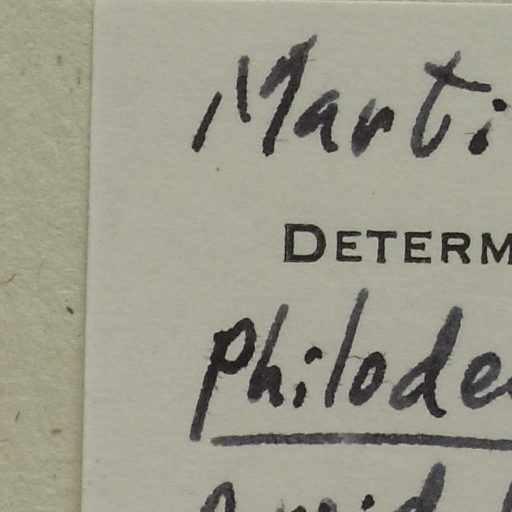 Marti
DETERM
Philode